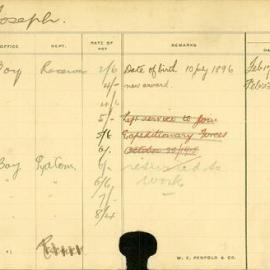 Joseph.
OFFICE DEPT. RATE OF PAY REMARKS DA
Boy 2/6 Date of birth 10 July 1896 Feb 17
4/- new award Feb
5/- left service to join
5/6 Expeditionary Forces
6/- October
Boy 6/- resumed
6/6 work
7/-
8/4
W. E. PENFOLD & CO.